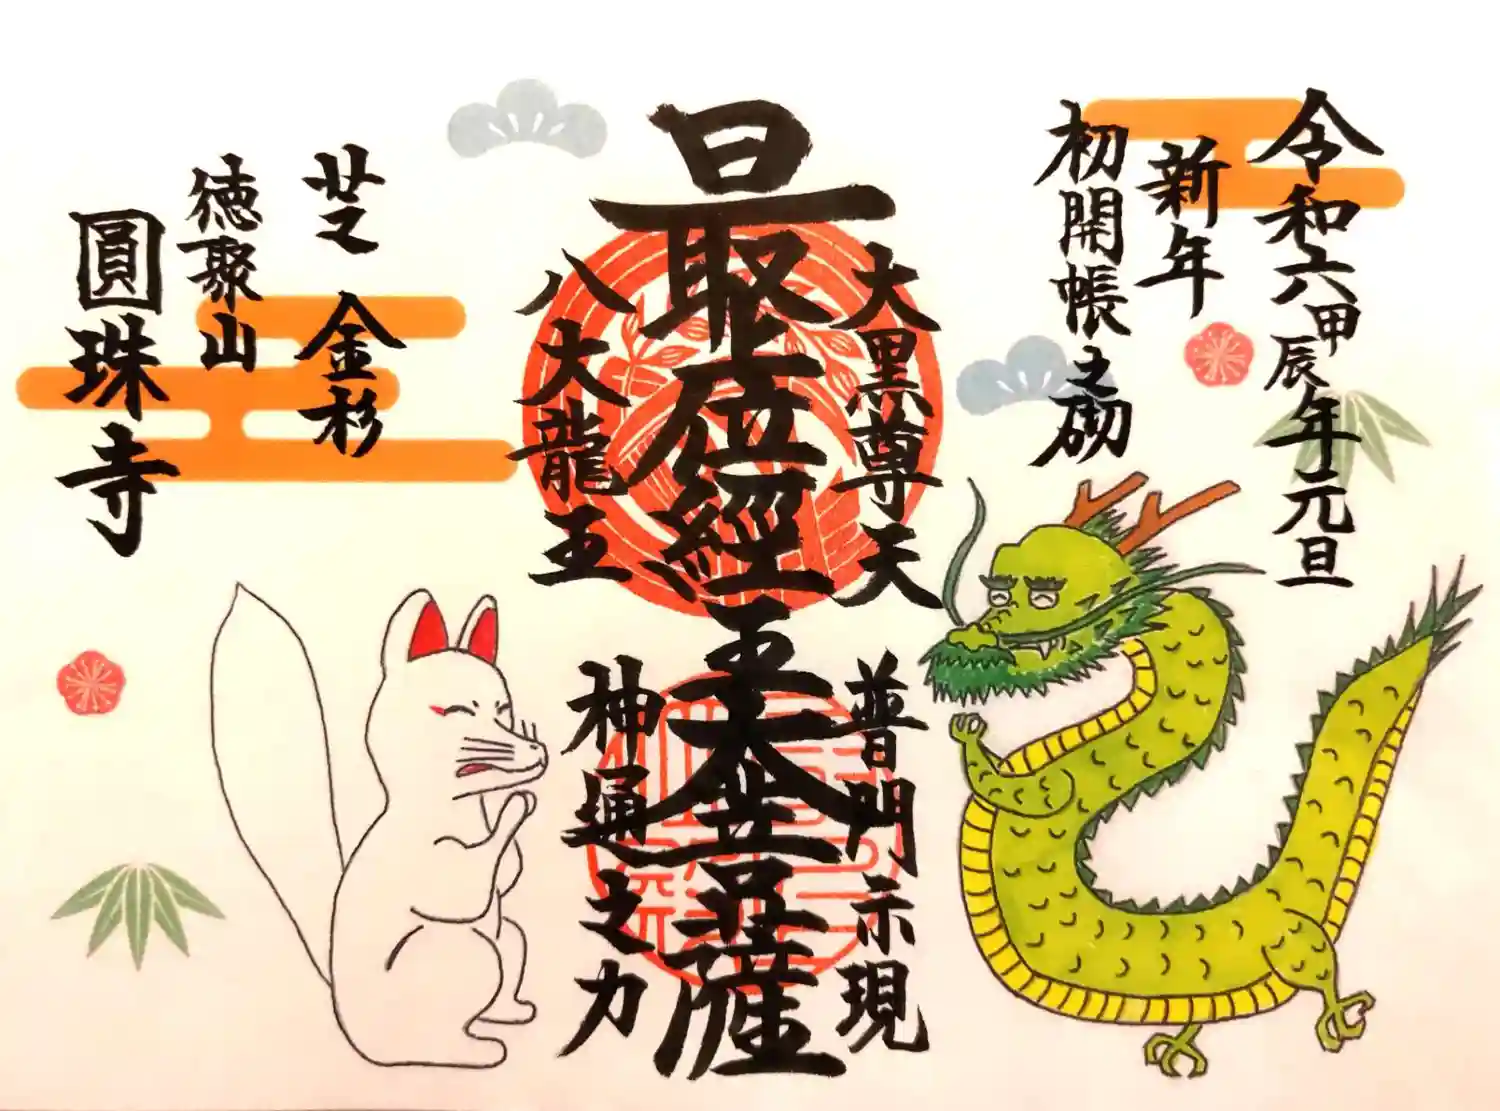 令和六甲辰年元旦
新年
初開帳之砌
大黒尊天
普門示現
最上位經王大菩薩
八大龍王
神通之力
芝金杉
徳聚山
圓珠寺